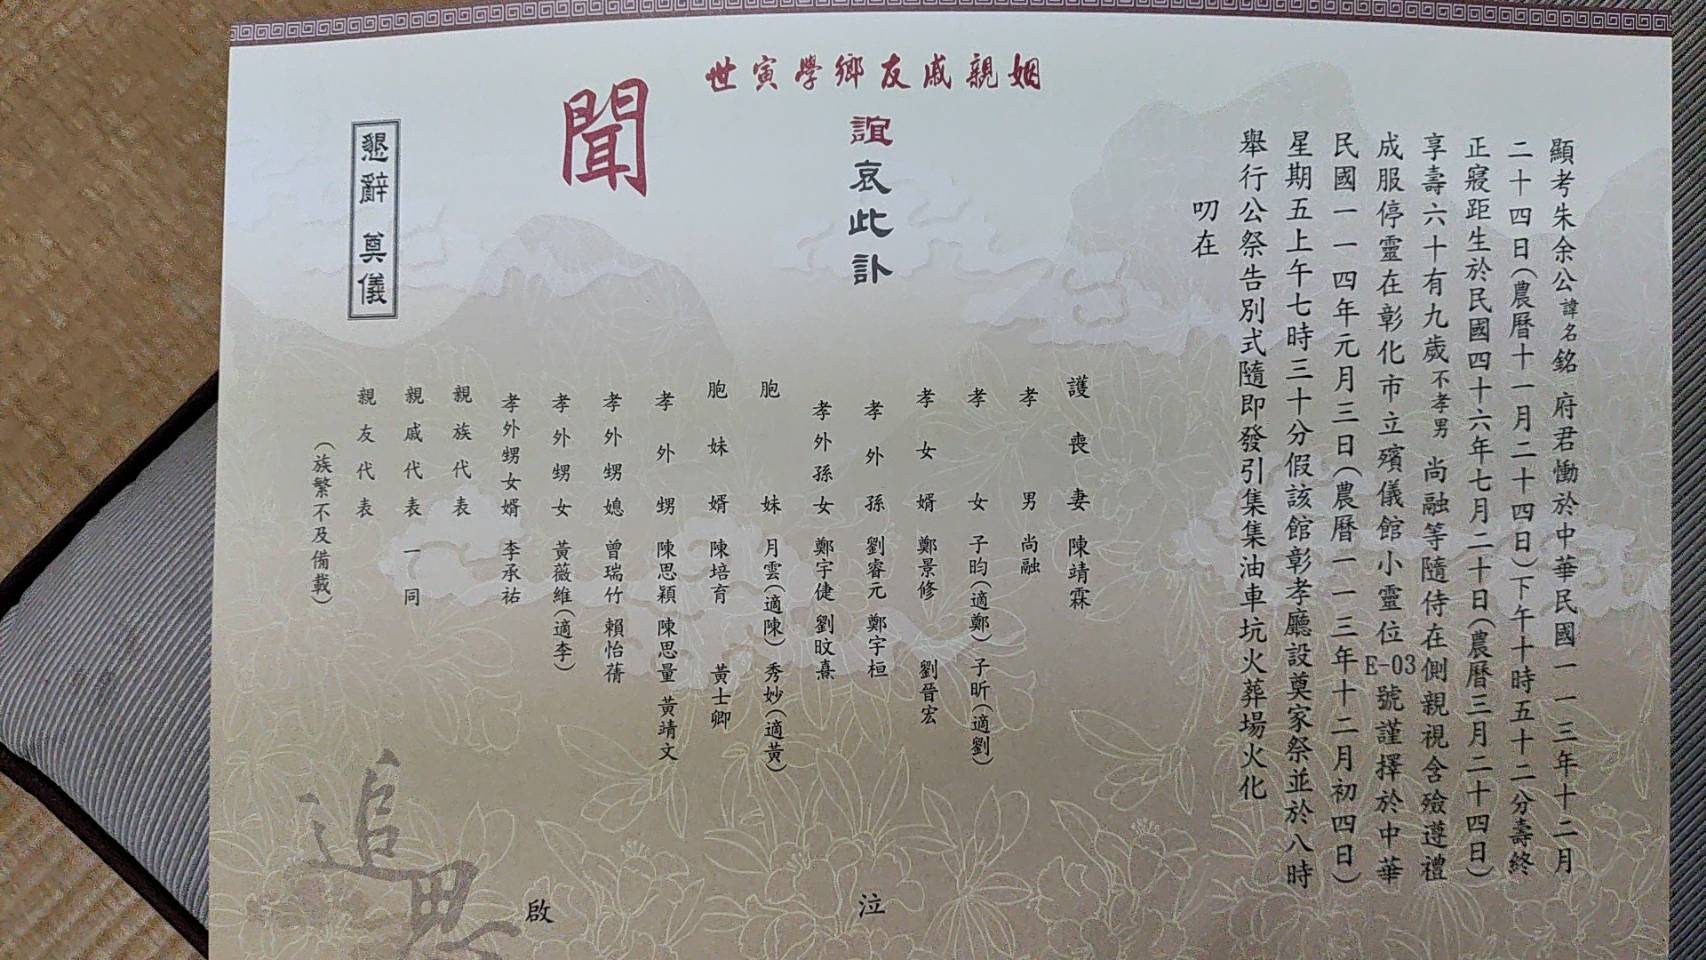 顯考朱余公諱名銘 府君慟於中華民國一一三年十二月
二十四日(農曆十一月二十四日)下午十時五十二分壽終
正寢距生於民國四十六年七月二十日(農曆三月二十四日)
享壽六十有九歲不孝男 尚融等隨侍在側親視含殮遵禮
成服停靈在彰化市立殯儀館小靈位E-03號謹擇於中華
民國一一四年元月三日(農曆一一三年十二月初四日)
星期五上午七時三十分假該館彰孝廳設奠家祭並於八時
舉行公祭告別式隨即發引集集油車坑火葬場火化
叨在
姻親戚友鄉學寅世
誼哀此訃
聞
護喪妻 陳靖霖
孝男 尚融
孝女 子昀(適鄭) 子昕(適劉)
孝女婿 鄭景修 劉晉宏
孝外孫 劉睿元 鄭宇桓
孝外孫女 鄭宇倢 劉旼熹
胞妹 月雲(適陳) 秀妙(適黃)
胞妹婿 陳培育 黃士卿
孝外甥 陳思穎 陳思量 黃靖文
孝外甥媳 曾瑞竹 賴怡蒨
孝外甥女 黃薇維(適李)
孝外甥女婿 李承祐
親族代表
親戚代表 一同
親友代表
(族繁不及備載)
泣
啟
懇辭 奠儀
追思